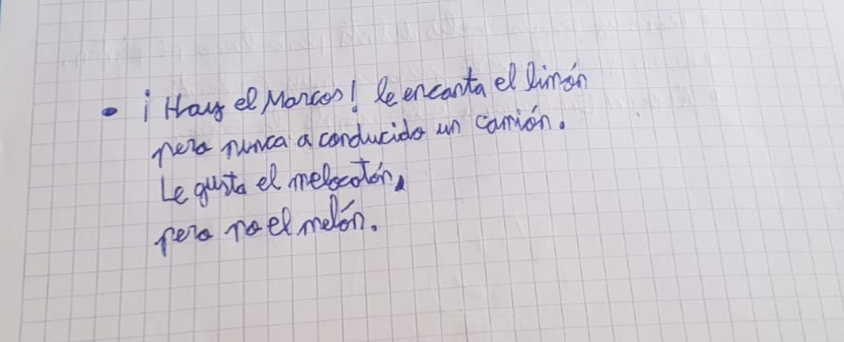 • ¡Hay el Marcos! le encanta el limón
pero nunca a conducido un camión.
Le gusta el melocotón,
pero no el melón.